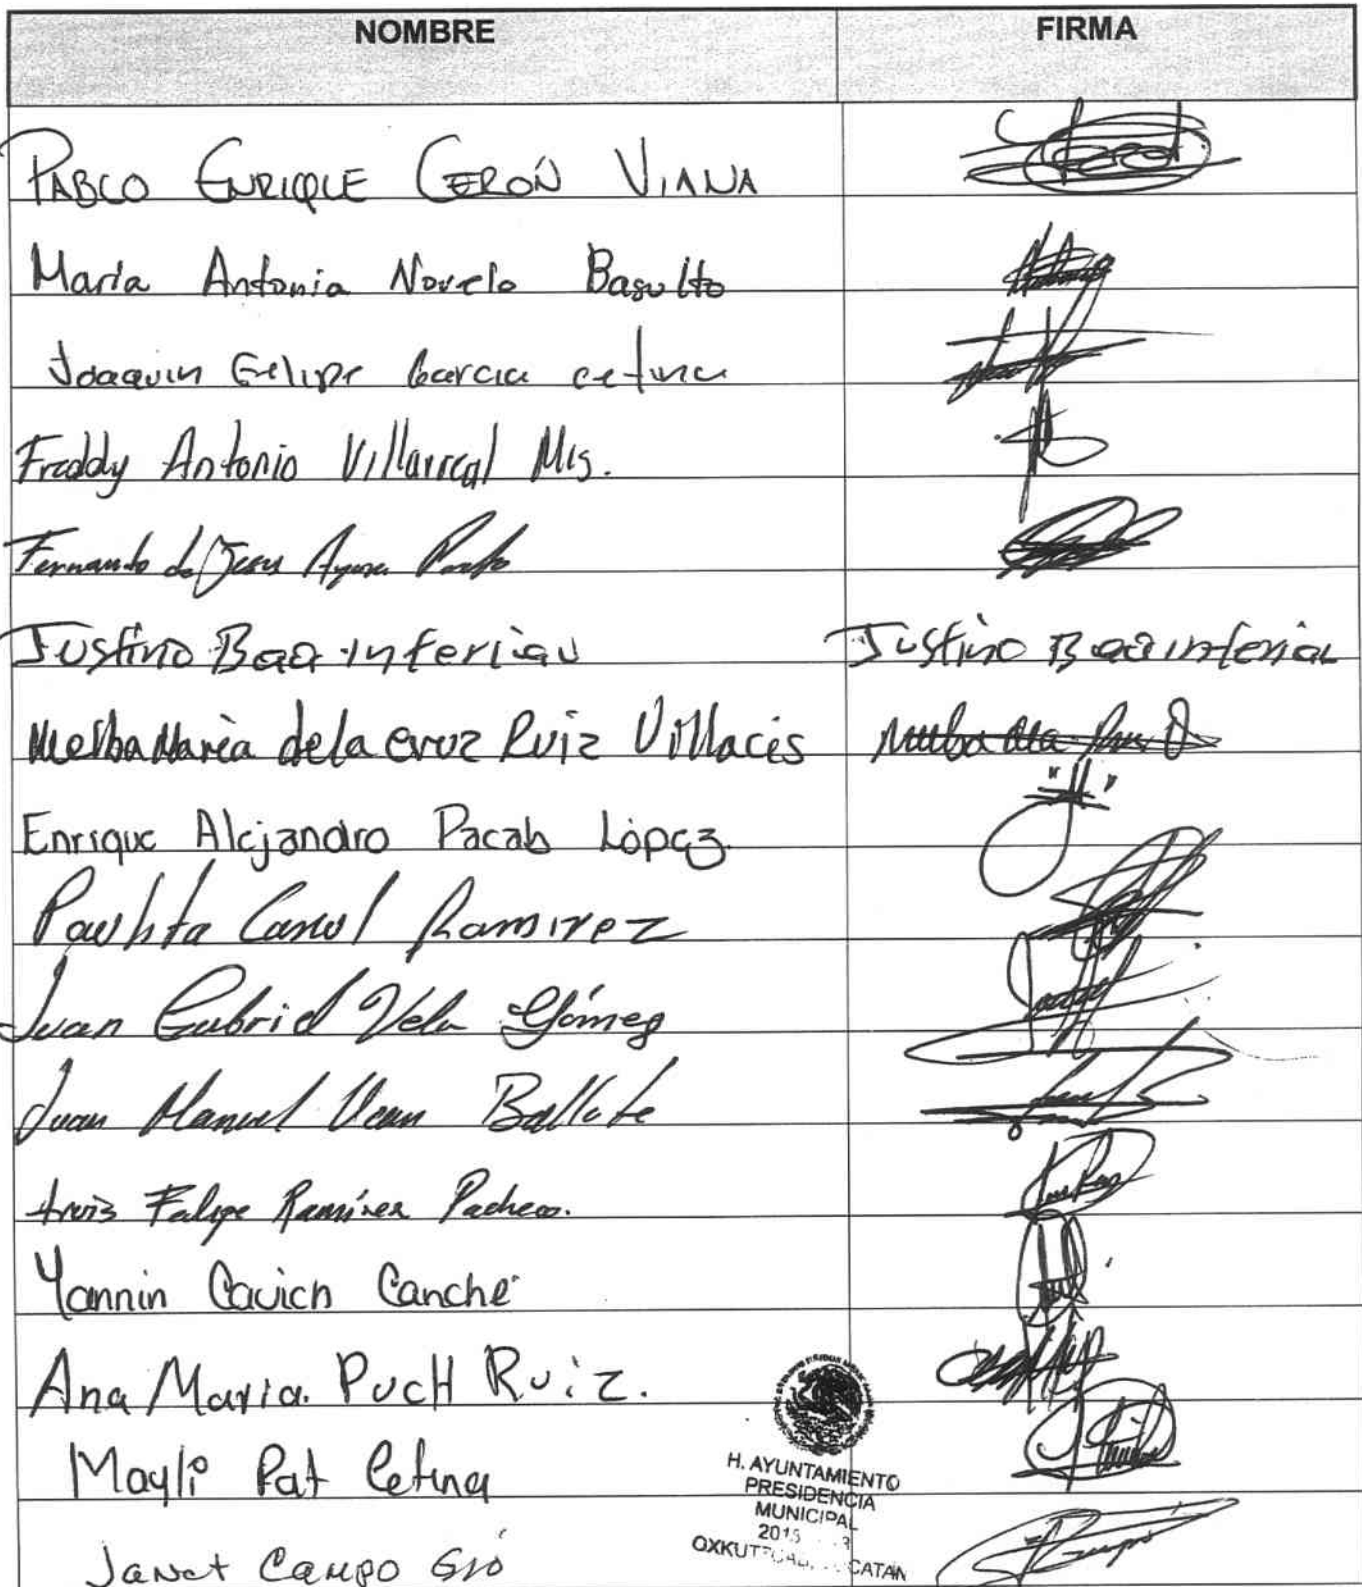 NOMBRE FIRMA
PABLO ENRIQUE CERÓN VIANA
Maria Antonia Novelo Basulto
Joaquin Felipe Garcia cetina
Freddy Antonio Villarreal Mis.
Fernando de Jesus
Justino Baa interian Justino Baa interian
Melba María de la cruz Ruiz Villacis Melba Ma
Enrique Alejandro Pacab López
Paulita Canul Ramirez
Juan Gabriel Vela Gómez
Juan Manuel Ballote
Luis Felipe Ramírez Pacheco.
Yannin Cauich Canché
Ana Maria. PucH Ruiz.
Mayli Pat Cetina
H. AYUNTAMIENTO
PRESIDENCIA
MUNICIPAL
Janet Campo